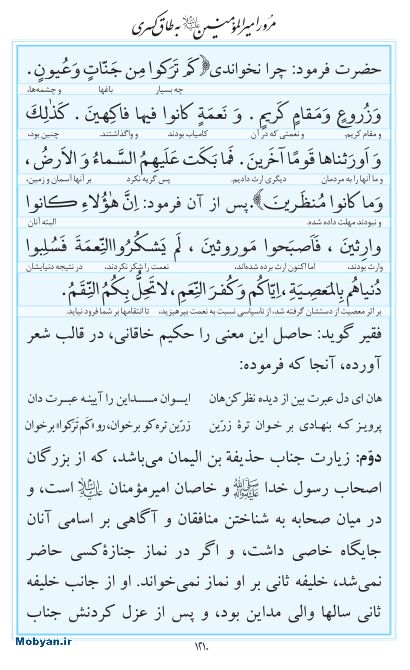 مرور امیرالمؤمنین علیه‌السلام به طاق کسری
حضرت فرمود: چرا نخواندی ﴿کَم تَرَکوا مِن جَنّاتٍ وَعُیونٍ.
چه بسیار باغها و چشمه‌ها،
وَزُروعٍ وَمَقامٍ کَریمٍ. وَ نَعمَةٍ کانوا فیها فاکِهینَ. کَذٰلِكَ
و مقام کریم. و نعمتی که در آن کامیاب بودند و واگذاشتند. چنین بود،
وَ اَورَثناها قَومًا آخَرینَ. فَما بَکَت عَلَیهِمُ السَّماءُ وَ الاَرضُ،
و ما آنها را به مردمان دیگری ارث دادیم. پس گریه نکرد بر آنها آسمان و زمین،
وَما کانوا مُنظَرینَ﴾.پس از آن فرمود: اِنَّ هٰؤُلاءِ کانوا
و نبودند مهلت داده شده. البته آنان
وارِثینَ، فَاَصبَحوا مَوروثینَ، لَم یَشکُروا النِّعمَةَ فَسُلِبوا
وارث بودند، اما اکنون ارث برده شده‌اند، نعمت را شکر نکردند، در نتیجه دنیایشان
دُنیاهُم بِالمَعصِیَةِ، اِیّاکُم وَ کُفرَ النِّعَمِ، لا تَحِلُّ بِکُمُ النِّقَمُ.
بر اثر معصیت از دستشان گرفته شد، از ناسپاسی نسبت به نعمت بپرهیزید، تا انتقامها بر شما فرود نیاید.
فقیر گوید: حاصل این معنی را حکیم خاقانی، در قالب شعر
آورده، آنجا که فرموده:
هان ای دل عبرت بین از دیده نظر کن هان ایوان مداین را آیینه عبرت دان
پرویز که بنهادی بر خوان ترهٔ زرّین زرّین تره کو برخوان، رو «کم تَرَکوا» برخوان
دوّم: زیارت جناب حذیفة بن الیمان می‌باشد، که از بزرگان
اصحاب رسول خدا ﷺ و خاصان امیرمؤمنان علیه‌السلام است، و
در میان صحابه به شناختن منافقان و آگاهی بر اسامی آنان
جایگاه خاصی داشت، و اگر در نماز جنازهٔ کسی حاضر
نمی‌شد، خلیفه ثانی بر او نماز نمی‌خواند. او از جانب خلیفه
ثانی سالها والی مداین بود، و پس از عزل کردنش جناب
Mobyan.ir
۱۲۱۰